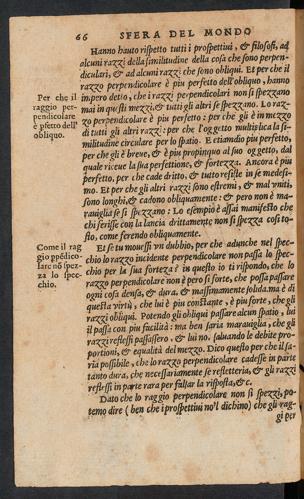 66 SFERA DEL MONDO
Hanno hauto rispetto tutti i prospettiui, & filosofi, ad
alcuni razzi della similitudine della cosa che sono perpen-
diculari, & ad alcuni razzi che sono obliqui. Et per che il
razzo perpendiculare è piu perfetto dell'obliquo, hanno
Per che il
raggio per-
pendiculare
è pfetto dell'
obliquo.
in pero detto, che i razzi perpendiculari non si spezzano
mai in questi mezzi, & tutti gli altri se spezzano. Lo raz-
zo perpendiculare è piu perfetto: per che gli è in mezzo
di tutti gli altri razzi: per che l'oggetto multiplica la si-
militudine circulare per lo spatio. E etiamdio piu perfetto,
per che gli è breue, & è piu propinquo al suo oggetto, dal
quale riceue la sua perfettione, & fortezza. Ancora è piu
perfetto, per che cade dritto, & tutto resiste in se medesi-
mo. Et per che gli altri razzi sono estremi, & mal vniti,
sono longhi, & cadono obliquamente: & pero non è ma-
rauiglia se si spezzano: Lo esempio è assai manifesto che
chi ferisse con la lancia drittamente non si spezza cosi to-
sto, come ferendo obliquamente.
Come il rag
gio ppēdico-
lare nō spez-
za lo spec-
chio.
Et se tu mouessi vn dubbio, per che adunche nel spec-
chio lo razzo incidente perpendiculare non passa lo spec-
chio per la sua fortezza? in questo io ti rispondo, che lo
razzo perpendiculare non è pero si forte, che possa passare
ogni cosa densa, & dura, & massimamente solida. ma è di
questa virtù, che lui è piu constante, è piu forte, che gli
razzi obliqui. Potendo gli obliqui passare alcun spatio, lui
il passa con piu facilità: ma ben saria marauiglia, che gli
razzi reflessi passassero, & lui no. saluando le debite pro-
portioni, & equalità del mezzo. Dico questo per che il sa-
ria possibile, che lo razzo perpendiculare cadesse in parte
tanto dura, che necessariamente se reflettería, & gli razzi
reflessi in parte rara per fulsar la risposta, &c.
Dato che lo raggio perpendiculare non si spezzi, po-
temo dire (ben che i prospettiui no'l dichino) che gli rag-
gi per